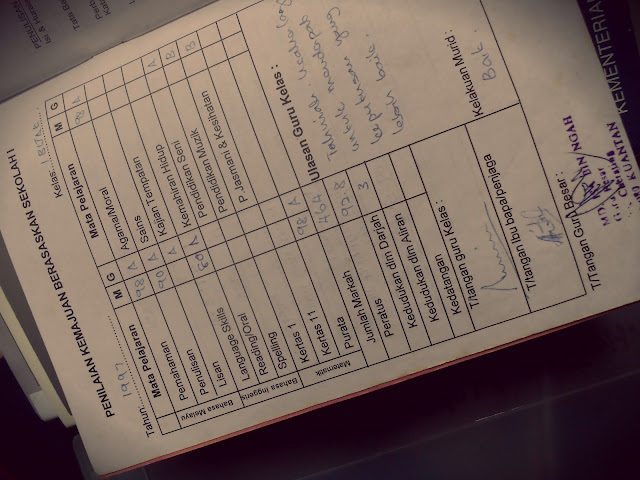 PENILAIAN KEMAJUAN BERASASKAN SEKOLAH I
Tahun: 1997
Kelas: 1 BIJAK
Mata Pelajaran M G
Bahasa Melayu
Pemahaman 98 A
Penulisan 90 A
Lisan A
Bahasa Inggeris
Language Skills 80 A
Reading/Oral
Spelling
Matematik
Kertas 1
Kertas 11
Purata 98 A
Jumlah Markah 464
Peratus 92.8
Kedudukan dlm Darjah 3
Kedudukan dlm Aliran
Kedatangan
Mata Pelajaran M G
Agama/Moral 98 A
Sains
Kajian Tempatan
Kemahiran Hidup
Pendidikan Seni A
Pendidikan Muzik B
Pendidikan B
P.Jasmani & Kesihatan
Ulasan Guru Kelas:
Tahniah
untuk mendapat
keputusan yang
lebih baik.
Kelakuan Murid:
Baik.
T/Tangan guru Kelas:
T/tangan Ibu bapa/penjaga
T/Tangan Guru Besar:
BIN NOAH
KUANTAN
KEMENTERIA